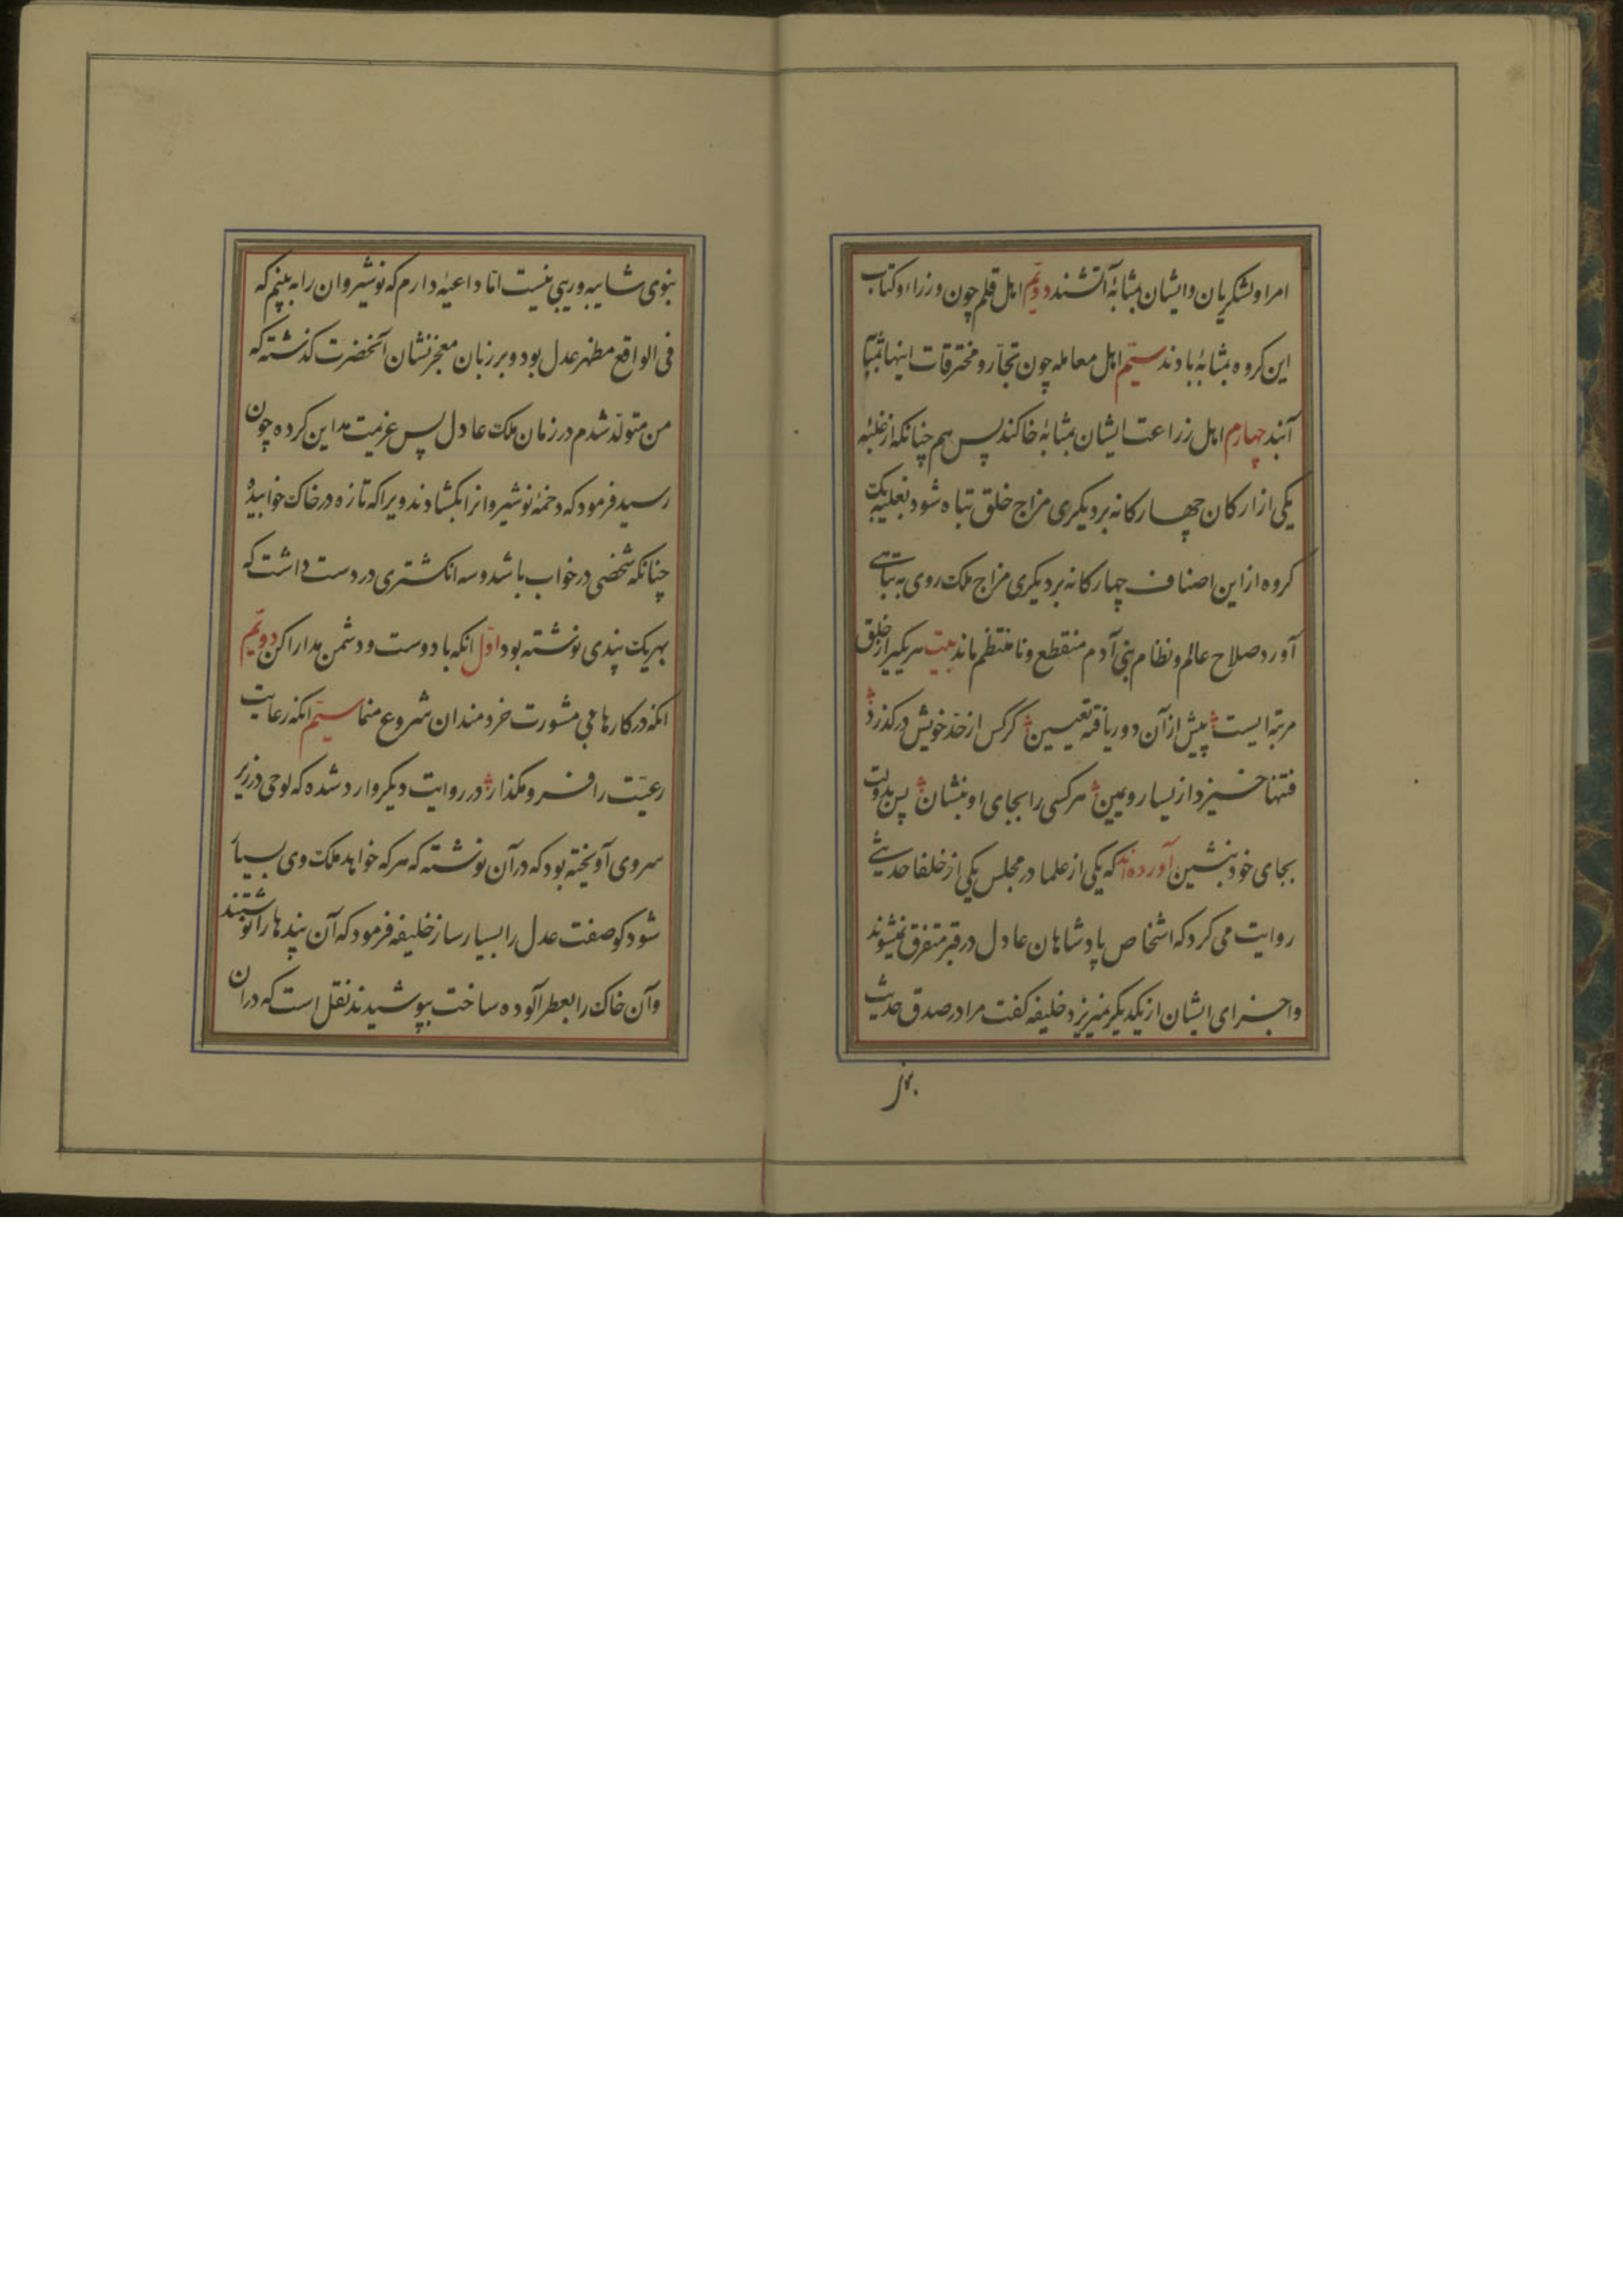 امرا و لشکریان و ایشان بمثابۀ آتشند دویّم اهل قلم چون وزراء و کتاب
این کروه بمثابۀ بادند سیّم اهل معامله چون تجّار و محترفات اینها بمثابۀ
آبند چهارم اهل زراعت ایشان بمثابۀ خاکند پس هم چنانکه از غلبۀ
یکی از ارکان چهارکانه بر دیکری مزاج خلق تباه شود بغلبۀ یک
کروه از این اصناف چهارکانه بر دیکری مزاج ملک روی به تباهی
آورد صلاح عالم و نظام بنی آدم منقطع و نامنتظم ماند بیت هر یکیرا از خلق
مرتبۀ ایست پیش از آن دور یافته تعیین کر کس از حدّ خویش در کذرد
فتنها خیزد از یسار و یمین هر کسی را بجای او بنشان پس بدولت
بجای خود بنشین آورده‌اند که یکی از علما در مجلس یکی از خلفا حدیثی
روایت می کرد که اشخاص پادشاهان عادل در قبر متفرق نمیشوند
و اجزای ایشان از یکدیکر نمیریزد خلیفه کفت مرا در صدق حدیث
نبوی شایبه و ریبی نیست امّا داعیۀ دارم که نوشیروان را به بینم که
فی الواقع مظهر عدل بود و بر زبان معجز نشان آنحضرت کذشته که
من متولّد شدم در زمان ملک عادل پس عزیمت مداین کرده چون
رسید فرمود که دخمۀ نوشیروانرا بکشادند ویرا که تازه در خاک خوابیده
چنانکه شخصی در خواب باشد و سه انکشتری در دست داشت که
بهر یک پندی نوشته بود اوّل انکه با دوست و دشمن مدارا کن دویّم
انکه در کارها بی مشورت خردمندان شروع منما سیّم انکه رعایت
رعیّت را فرو مکذار در روایت دیکر وارد شده که لوحی در زیر
سر وی آویخته بود که در آن نوشته که هر که خواهد ملک وی بسیار
شود کو صفت عدل را بسیار ساز خلیفه فرمود که آن پندها را نوشتند
و آن خاک را بعطر آلوده ساخت بپوشیدند نقل است که در ان